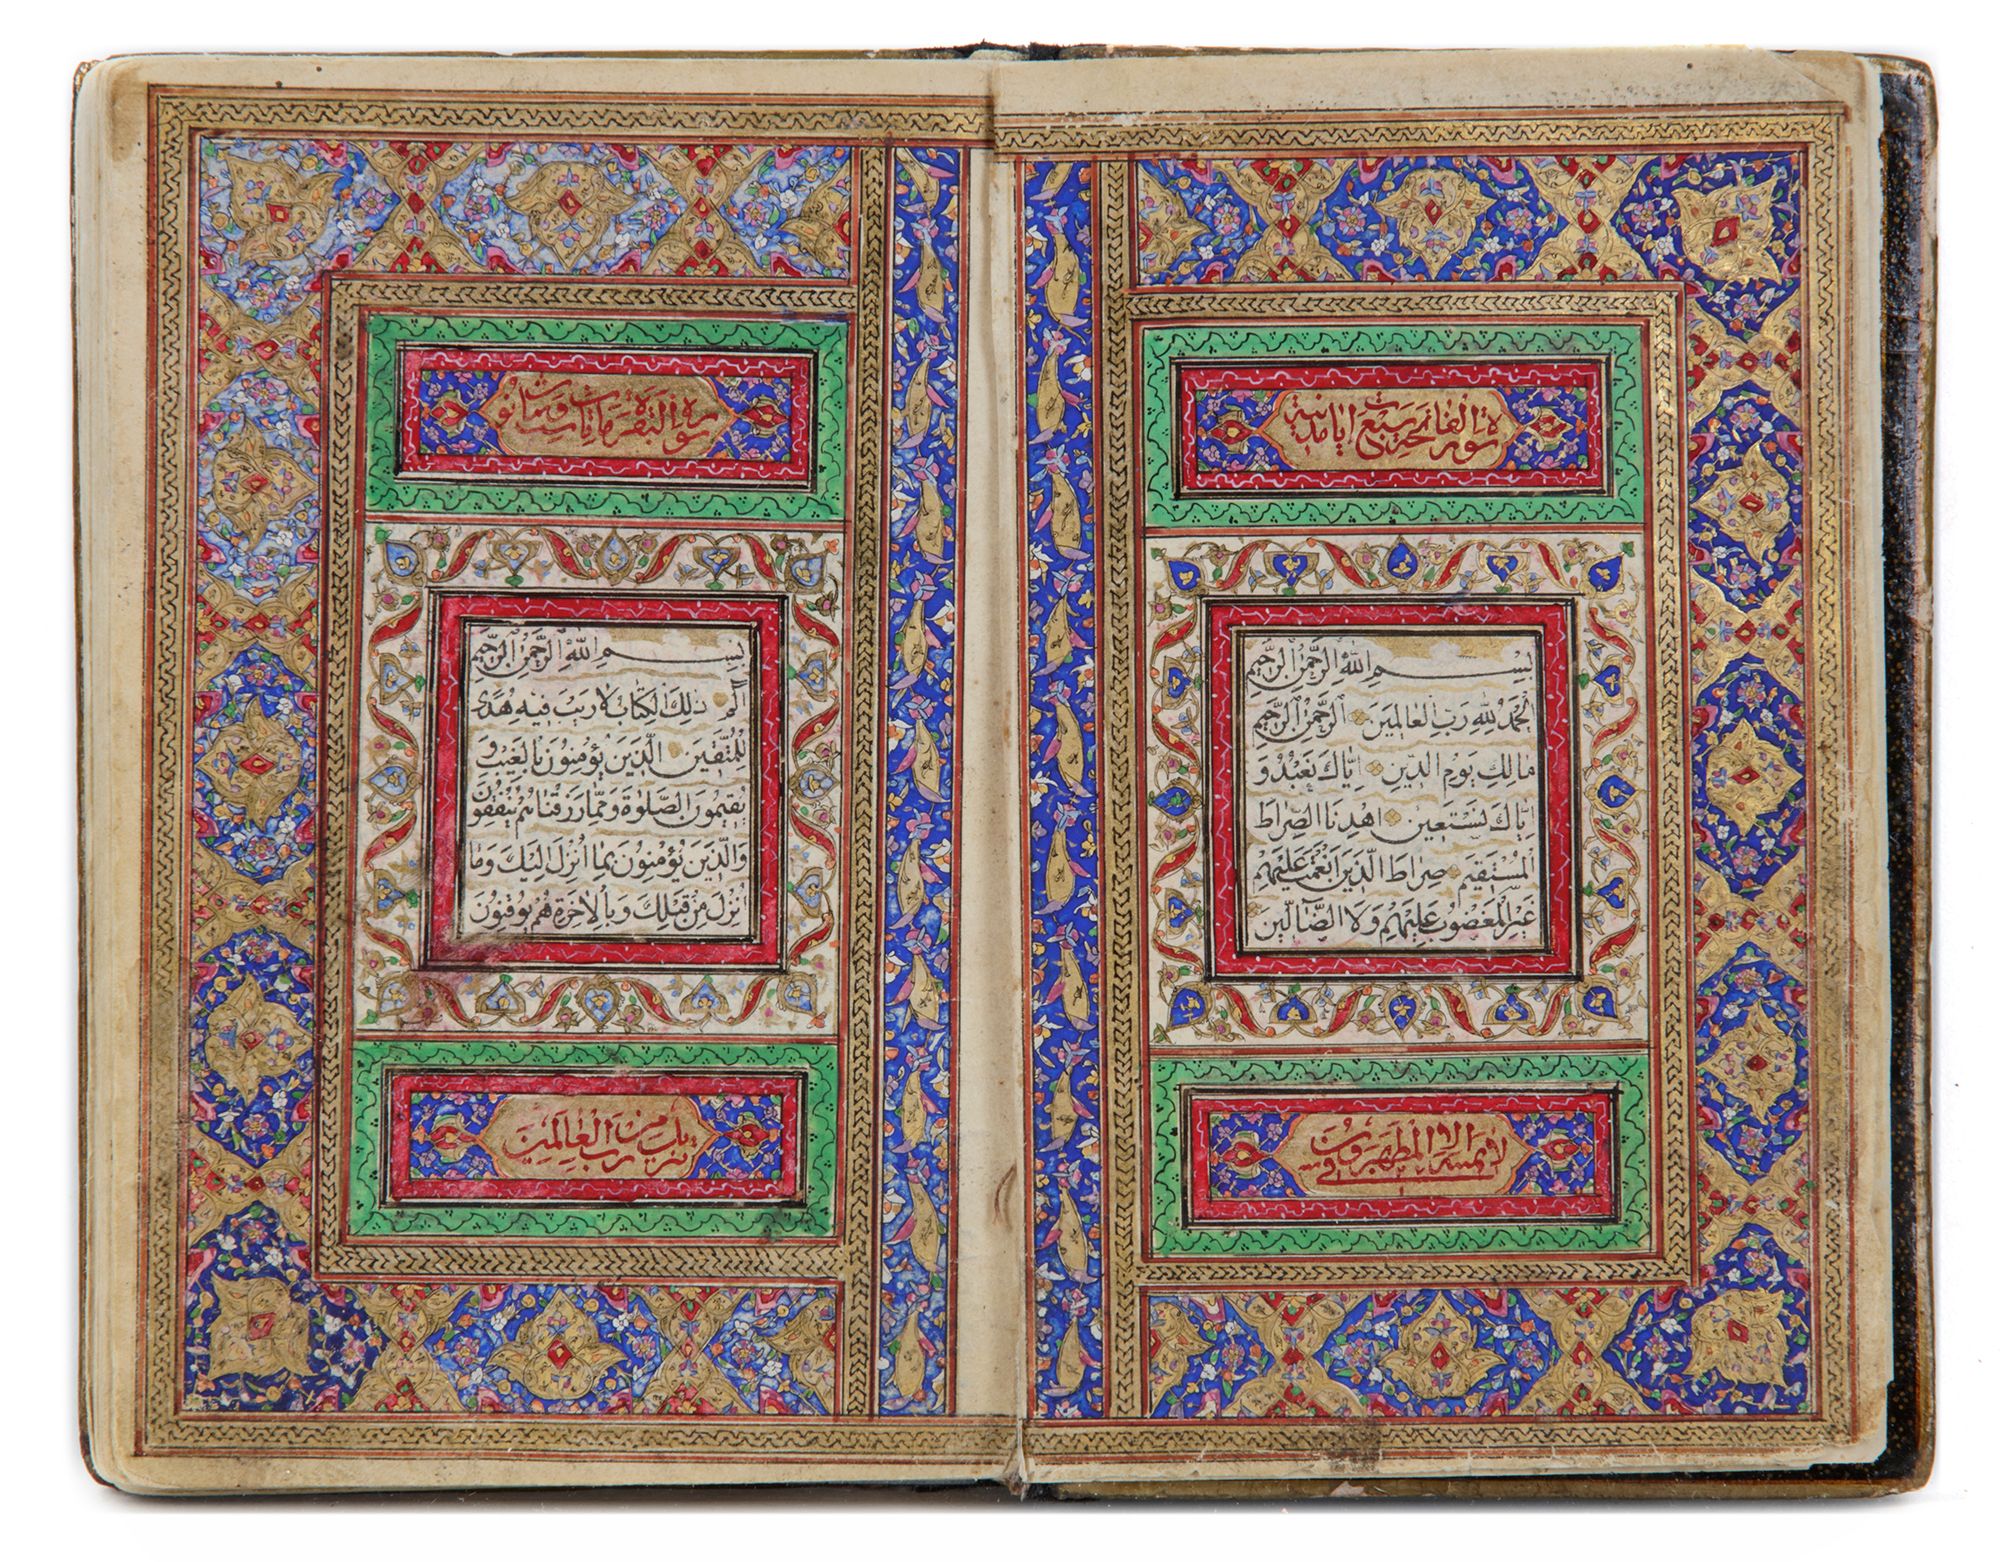 سورة الفاتحة سبع ايات مدنية
بِسْمِ اللّٰهِ الرَّحْمٰنِ الرَّحِيمِ
اَلْحَمْدُ لِلّٰهِ رَبِّ الْعَالَمِينَ الرَّحْمٰنِ الرَّحِيمِ
مَالِكِ يَوْمِ الدِّينِ اِيَّاكَ نَعْبُدُ وَ
اِيَّاكَ نَسْتَعِينُ اِهْدِنَا الصِّرَاطَ
الْمُسْتَقِيمَ صِرَاطَ الَّذِينَ اَنْعَمْتَ عَلَيْهِمْ
غَيْرِ الْمَغْضُوبِ عَلَيْهِمْ وَلَا الضَّآلِّينَ
لا يمسه الا المطهرون
سورة البقرة
بِسْمِ اللّٰهِ الرَّحْمٰنِ الرَّحِيمِ
الٓمٓ ذٰلِكَ الْكِتَابُ لَا رَيْبَ فِيهِ هُدًى
لِلْمُتَّقِينَ الَّذِينَ يُؤْمِنُونَ بِالْغَيْبِ وَ
يُقِيمُونَ الصَّلٰوةَ وَمِمَّا رَزَقْنَاهُمْ يُنْفِقُونَ
وَالَّذِينَ يُؤْمِنُونَ بِمَا اُنْزِلَ اِلَيْكَ وَمَا
اُنْزِلَ مِنْ قَبْلِكَ وَبِالْاٰخِرَةِ هُمْ يُوقِنُونَ
تنزيل من رب العالمين